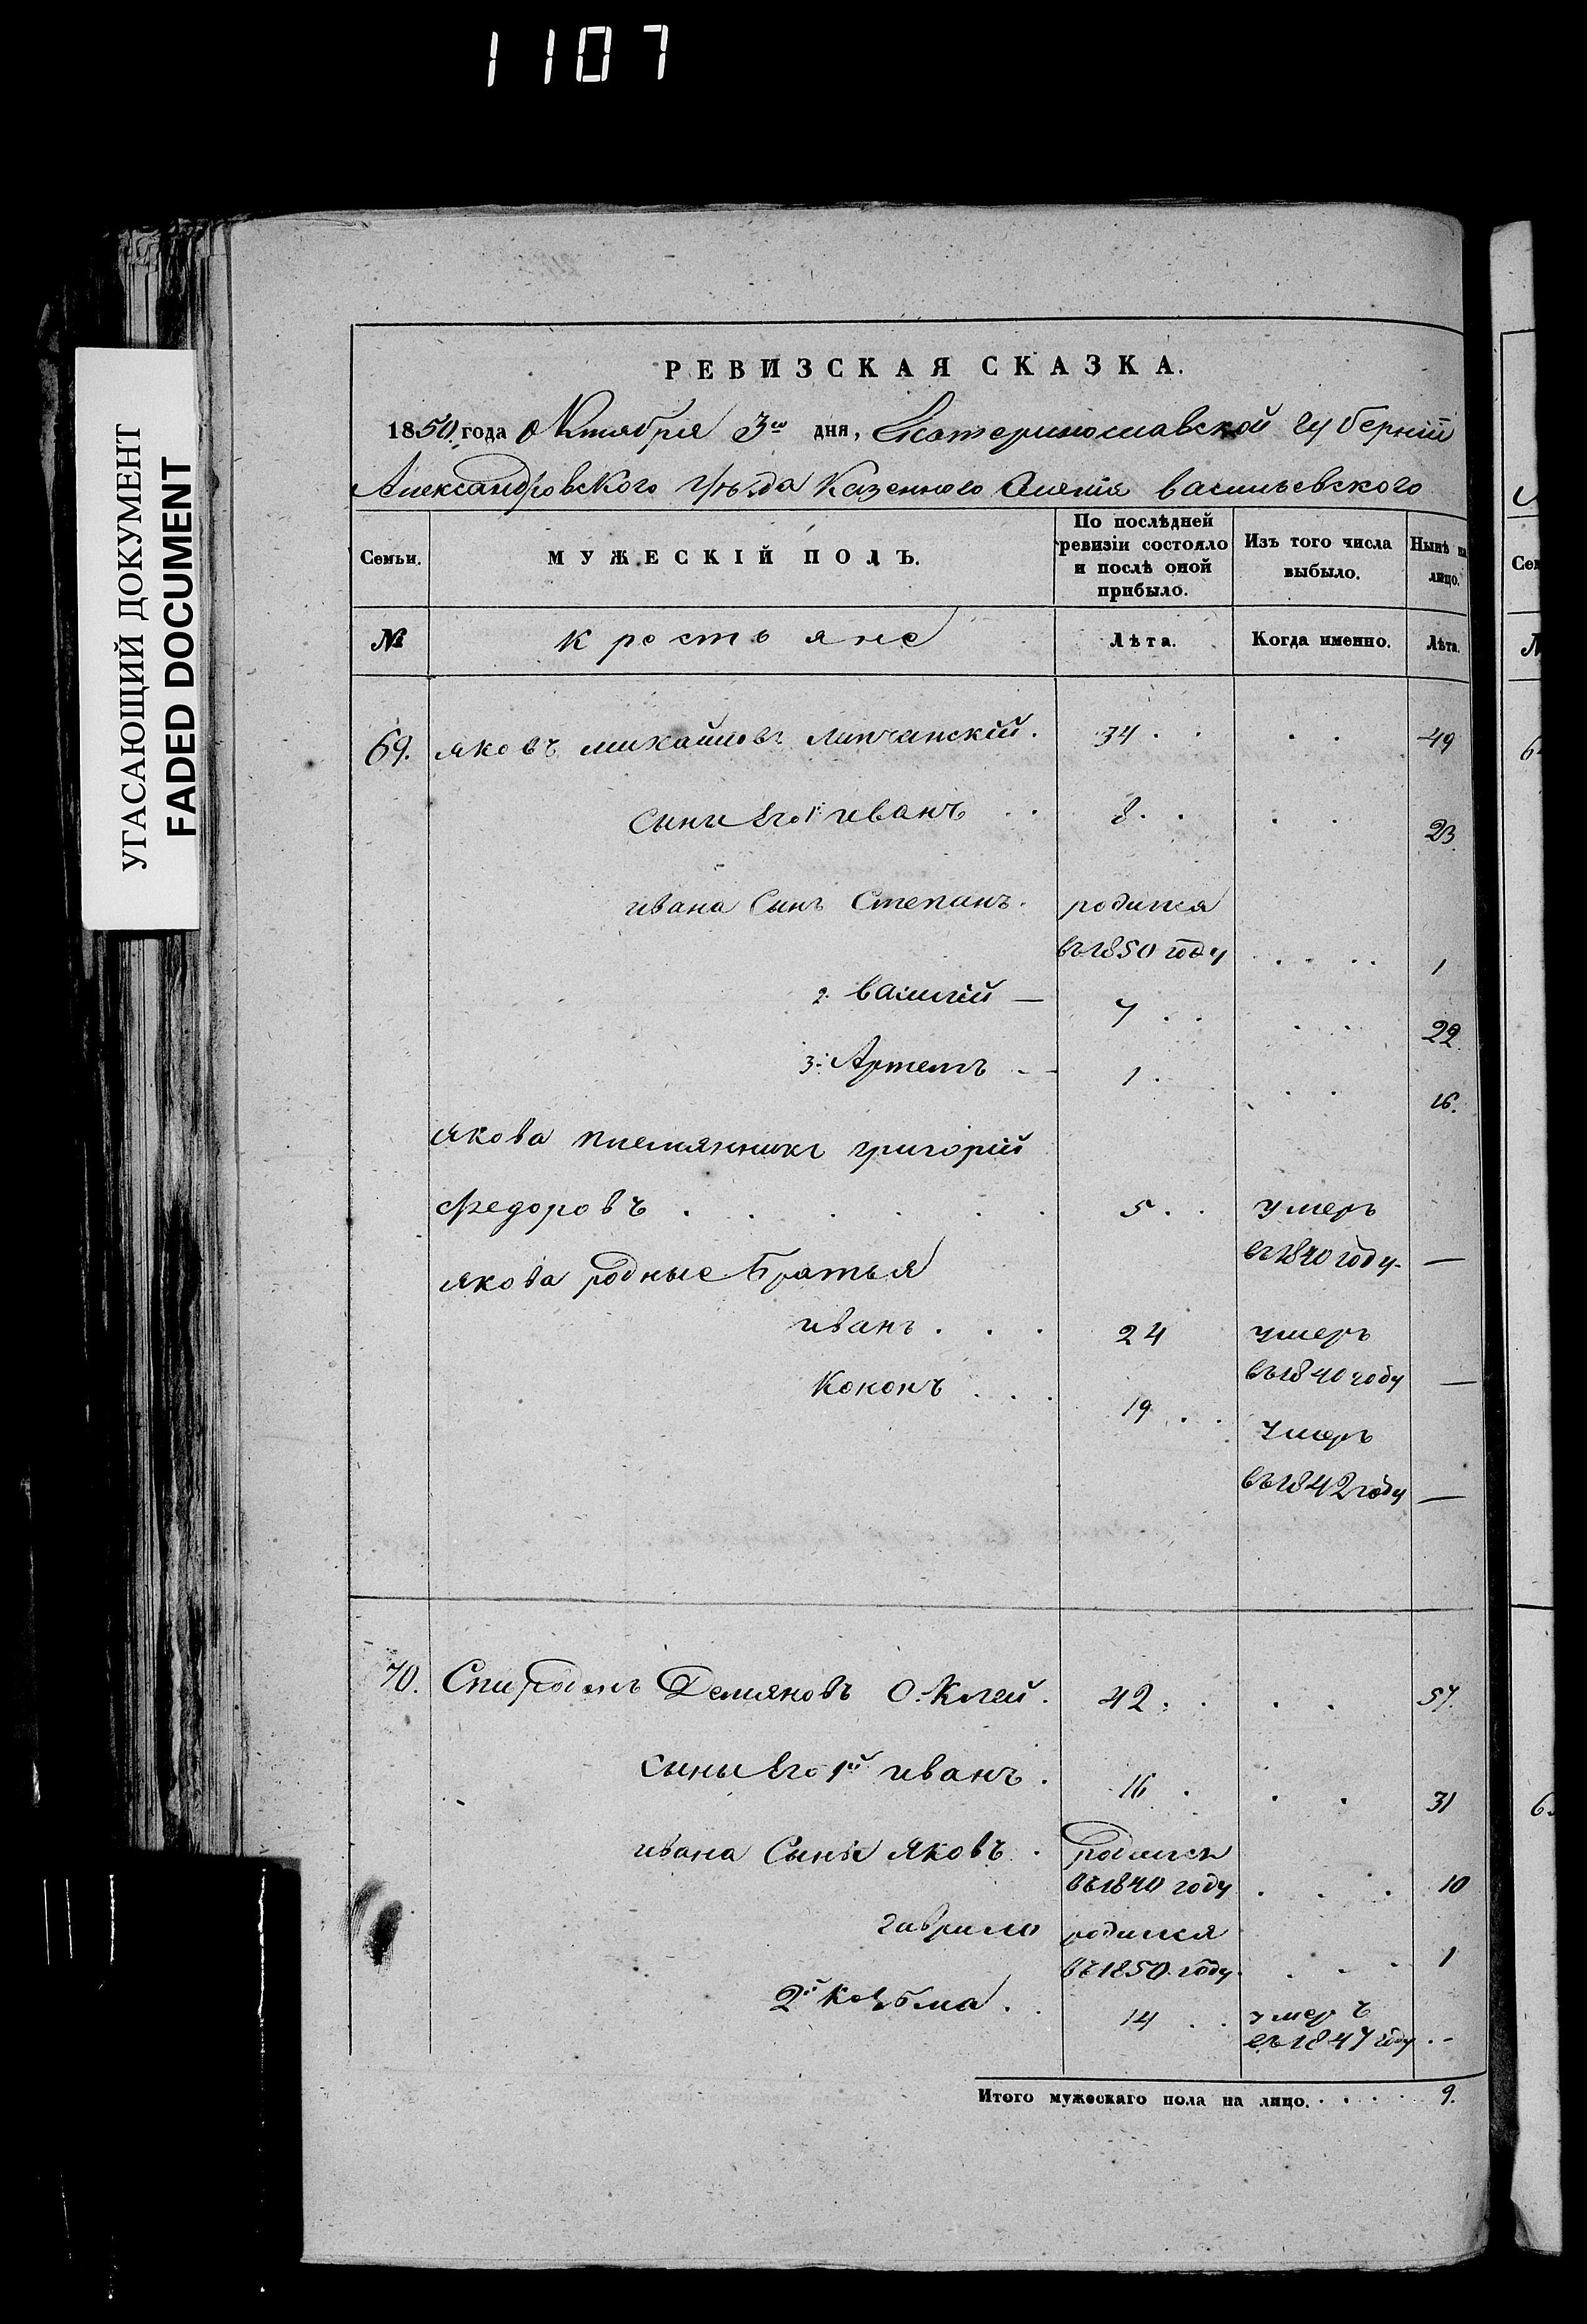 1107
УГАСАЮЩИЙ ДОКУМЕНТ
FADED DOCUMENT
РЕВИЗСКАЯ СКАЗКА.
1850. года Октября 3го дня, Екатеринославской губернiи
Александровского уѣзда казенного селенiя васильевского
Семьи.
МУЖЕСКІЙ ПОЛЪ.
По послѣдней ревизіи состояло и послѣ оной прибыло.
Изъ того числа выбыло.
Нынѣ на лицо.
№ крестьяне Лѣта. Когда именно. Лѣта.
69. яковъ михайловъ липчанскiй. 34 . . . . 49
сыны Его 1й иванъ . . 8 . . . . 23.
ивана Сынъ Степанъ. родился
въ 1850 году . . . . 1
2. василiй — 7 . . . . 22.
3й Артемъ - - 1 . . . 16.
якова племянникъ григорiй
Федоровъ . . . . . . 5 . . умеръ
въ 1840 году —
якова родные Братья
иванъ . . . 24 умеръ
въ 1840 году —
Кононъ . . . 19 . . Умеръ
въ 1842 году —
70. Спиридонъ Демяновъ О-Клей. 42 . . . . 57.
сыны Его 1й иванъ. 16 . . . 31
ивана Сыны Яковъ . родился
въ 1840 году . . . 10
гаврило родился
въ 1850 году . . . . 1
2й Козьма . . 14 . . умеръ
въ 1847 году . -
Итого мужескаго пола на лицо. . . . . 9.